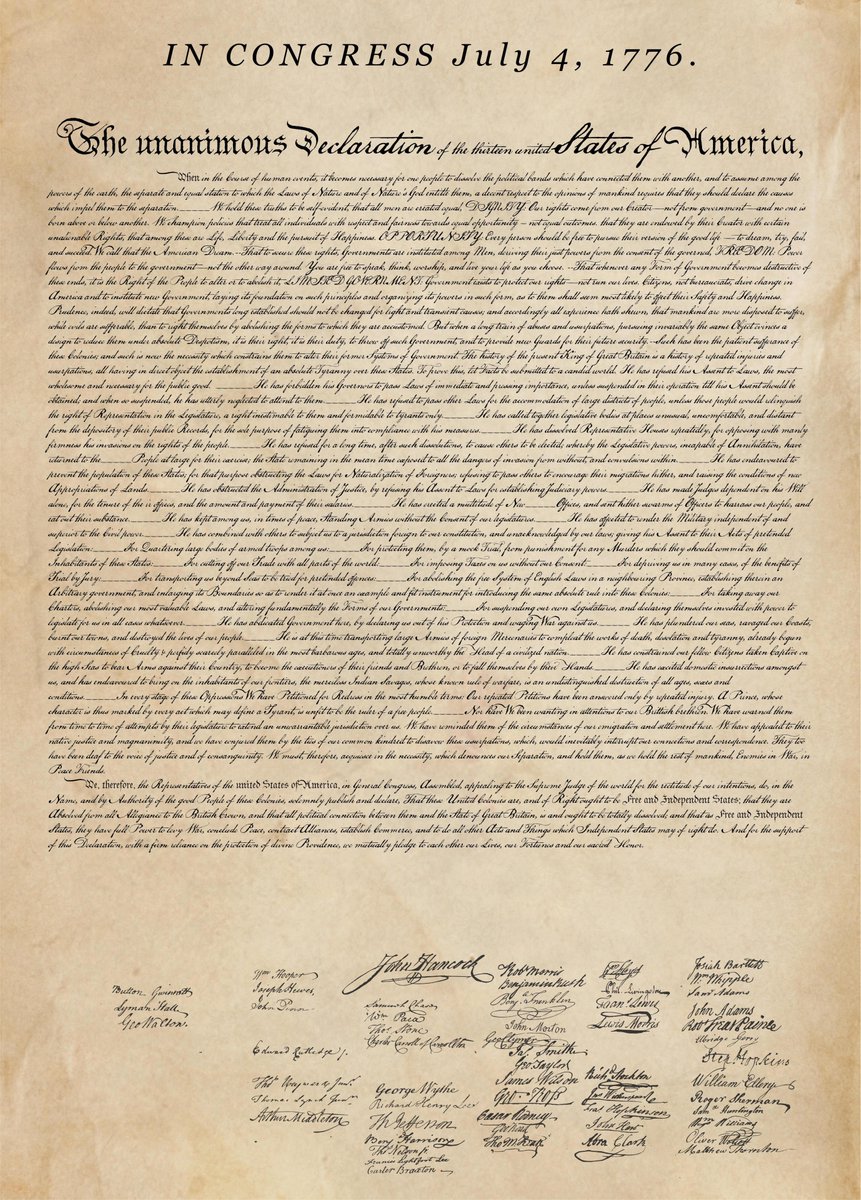 IN CONGRESS July 4, 1776.
The unanimous Declaration of the thirteen united States of America,
When in the Course of human events, it becomes necessary for one people to dissolve the political bands which have connected them with another, and to assume among the
powers of the earth, the separate and equal station to which the Laws of Nature and of Nature's God entitle them, a decent respect to the opinions of mankind requires that they should declare the causes
which impel them to the separation. We hold these truths to be self-evident, that all men are created equal, DIGNITY: Our rights come from our Creator—not from government—and no one is
born above or below another. We champion policies that treat all individuals with respect and fairness towards equal opportunity – not equal outcomes. that they are endowed by their Creator with certain
unalienable Rights, that among these are Life, Liberty and the pursuit of Happiness. OPPORTUNITY: Every person should be free to pursue their version of the good life — to dream, try, fail,
and succeed. We call that the American Dream.--That to secure these rights, Governments are instituted among Men, deriving their just powers from the consent of the governed, FREEDOM: Power
flows from the people to the government—not the other way around. You are free to speak, think, worship, and live your life as you choose. --That whenever any Form of Government becomes destructive of
these ends, it is the Right of the People to alter or to abolish it, LIMITED GOVERNMENT: Government exists to protect our rights—not run our lives. Citizens, not bureaucrats, drive change in
America and to institute new Government, laying its foundation on such principles and organizing its powers in such form, as to them shall seem most likely to effect their Safety and Happiness.
Prudence, indeed, will dictate that Governments long established should not be changed for light and transient causes; and accordingly all experience hath shewn, that mankind are more disposed to suffer,
while evils are sufferable, than to right themselves by abolishing the forms to which they are accustomed. But when a long train of abuses and usurpations, pursuing invariably the same Object evinces a
design to reduce them under absolute Despotism, it is their right, it is their duty, to throw off such Government, and to provide new Guards for their future security.--Such has been the patient sufferance of
these Colonies; and such is now the necessity which constrains them to alter their former Systems of Government. The history of the present King of Great Britain is a history of repeated injuries and
usurpations, all having in direct object the establishment of an absolute Tyranny over these States. To prove this, let Facts be submitted to a candid world. He has refused his Assent to Laws, the most
wholesome and necessary for the public good. He has forbidden his Governors to pass Laws of immediate and pressing importance, unless suspended in their operation till his Assent should be
obtained; and when so suspended, he has utterly neglected to attend to them. He has refused to pass other Laws for the accommodation of large districts of people, unless those people would relinquish
the right of Representation in the Legislature, a right inestimable to them and formidable to tyrants only. He has called together legislative bodies at places unusual, uncomfortable, and distant
from the depository of their public Records, for the sole purpose of fatiguing them into compliance with his measures. He has dissolved Representative Houses repeatedly, for opposing with manly
firmness his invasions on the rights of the people. He has refused for a long time, after such dissolutions, to cause others to be elected; whereby the Legislative powers, incapable of Annihilation, have
returned to the People at large for their exercise; the State remaining in the mean time exposed to all the dangers of invasion from without, and convulsions within. He has endeavoured to
prevent the population of these States; for that purpose obstructing the Laws for Naturalization of Foreigners; refusing to pass others to encourage their migrations hither, and raising the conditions of new
Appropriations of Lands. He has obstructed the Administration of Justice, by refusing his Assent to Laws for establishing Judiciary powers. He has made Judges dependent on his Will
alone, for the tenure of their offices, and the amount and payment of their salaries. He has erected a multitude of New Offices, and sent hither swarms of Officers to harrass our people, and
eat out their substance. He has kept among us, in times of peace, Standing Armies without the Consent of our legislatures. He has affected to render the Military independent of and
superior to the Civil power. He has combined with others to subject us to a jurisdiction foreign to our constitution, and unacknowledged by our laws; giving his Assent to their Acts of pretended
Legislation: For Quartering large bodies of armed troops among us: For protecting them, by a mock Trial, from punishment for any Murders which they should commit on the
Inhabitants of these States: For cutting off our Trade with all parts of the world: For imposing Taxes on us without our Consent: For depriving us in many cases, of the benefits of
Trial by Jury: For transporting us beyond Seas to be tried for pretended offences: For abolishing the free System of English Laws in a neighbouring Province, establishing therein an
Arbitrary government, and enlarging its Boundaries so as to render it at once an example and fit instrument for introducing the same absolute rule into these Colonies: For taking away our
Charters, abolishing our most valuable Laws, and altering fundamentally the Forms of our Governments: For suspending our own Legislatures, and declaring themselves invested with power to
legislate for us in all cases whatsoever. He has abdicated Government here, by declaring us out of his Protection and waging War against us. He has plundered our seas, ravaged our Coasts,
burnt our towns, and destroyed the lives of our people. He is at this time transporting large Armies of foreign Mercenaries to compleat the works of death, desolation and tyranny, already begun
with circumstances of Cruelty & perfidy scarcely paralleled in the most barbarous ages, and totally unworthy the Head of a civilized nation. He has constrained our fellow Citizens taken Captive on
the high Seas to bear Arms against their Country, to become the executioners of their friends and Brethren, or to fall themselves by their Hands. He has excited domestic insurrections amongst
us, and has endeavoured to bring on the inhabitants of our frontiers, the merciless Indian Savages, whose known rule of warfare, is an undistinguished destruction of all ages, sexes and
conditions. In every stage of these Oppressions We have Petitioned for Redress in the most humble terms: Our repeated Petitions have been answered only by repeated injury. A Prince, whose
character is thus marked by every act which may define a Tyrant, is unfit to be the ruler of a free people. Nor have We been wanting in attentions to our Brittish brethren. We have warned them
from time to time of attempts by their legislature to extend an unwarrantable jurisdiction over us. We have reminded them of the circumstances of our emigration and settlement here. We have appealed to their
native justice and magnanimity, and we have conjured them by the ties of our common kindred to disavow these usurpations, which, would inevitably interrupt our connections and correspondence. They too
have been deaf to the voice of justice and of consanguinity. We must, therefore, acquiesce in the necessity, which denounces our Separation, and hold them, as we hold the rest of mankind, Enemies in War, in
Peace Friends.
We, therefore, the Representatives of the united States of America, in General Congress, Assembled, appealing to the Supreme Judge of the world for the rectitude of our intentions, do, in the
Name, and by Authority of the good People of these Colonies, solemnly publish and declare, That these United Colonies are, and of Right ought to be Free and Independent States; that they are
Absolved from all Allegiance to the British Crown, and that all political connection between them and the State of Great Britain, is and ought to be totally dissolved; and that as Free and Independent
States, they have full Power to levy War, conclude Peace, contract Alliances, establish Commerce, and to do all other Acts and Things which Independent States may of right do. And for the support
of this Declaration, with a firm reliance on the protection of divine Providence, we mutually pledge to each other our Lives, our Fortunes and our sacred Honor.
Button Gwinnett
Lyman Hall
Geo Walton.
Wm Hooper
Joseph Hewes,
John Penn
Edward Rutledge /.
Thos Heyward Junr.
Thomas Lynch Junr.
Arthur Middleton
John Hancock
Samuel Chase
Wm Paca
Thos Stone
Charles Carroll of Carrollton
George Wythe
Richard Henry Lee
Th Jefferson
Benj Harrison
Thos Nelson jr
Francis Lightfoot Lee
Carter Braxton
Robt Morris
Benjamin Rush
Benj Franklin
John Morton
Geo Clymer
Jas Smith
Geo Taylor
James Wilson
Geo. Ross
Caesar Rodney
Geo Read
Tho M:Kean
Wm Floyd
Phil. Livingston
Frans Lewis
Lewis Morris
Richd Stockton
Jno Witherspoon
Fras Hopkinson
John Hart
Abra Clark
Josiah Bartlett
Wm Whipple
Saml Adams
John Adams
Robt Treat Paine
Elbridge Gerry
Step. Hopkins
William Ellery
Roger Sherman
Saml Huntington
Wm Williams
Oliver Wolcott
Matthew Thornton